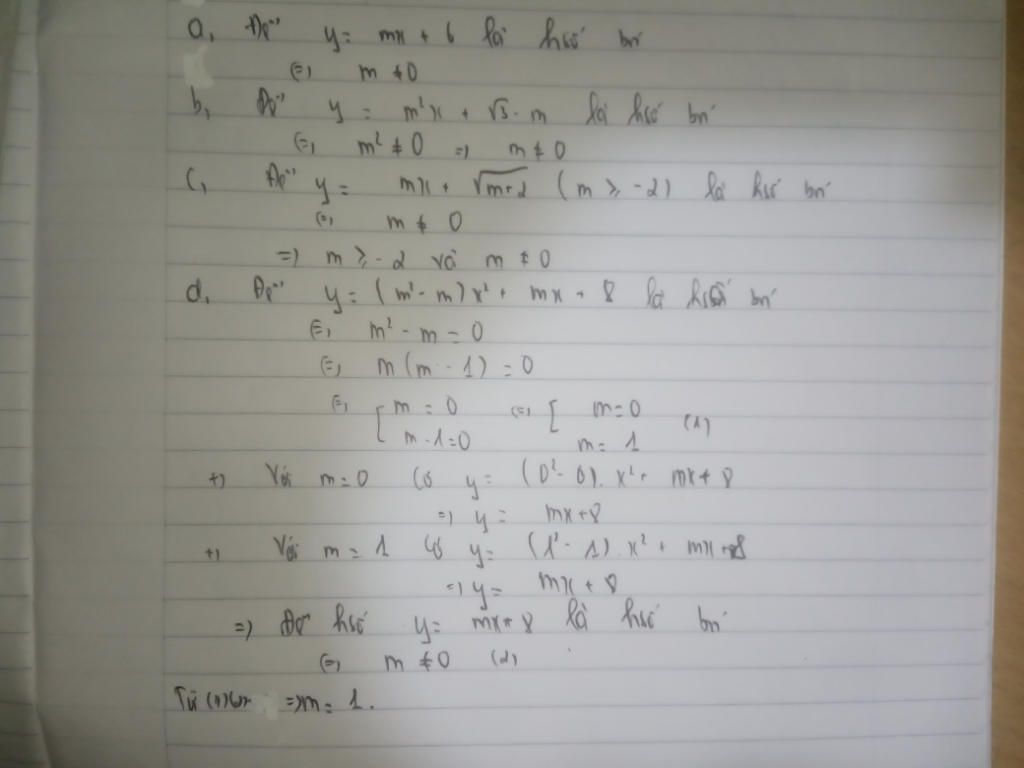 a, Để y = mx + 6 là hsố bn
(=) m ≠ 0
b, Để y = m²x + √3 - m là hsố bn
(=) m² ≠ 0 => m ≠ 0
c, Để y = mx + √m+2 (m ≥ -2) là hsố bn
(=) m ≠ 0
=) m ≥ -2 và m ≠ 0
d, Để y = (m² - m)x² + mx + 8 là hsố bn
(=) m² - m = 0
(=) m(m - 1) = 0
(=) [ m = 0 (=) [ m = 0
m - 1 = 0 m = 1 (1)
+) Với m = 0 Có y = (0² - 0). x² + mx + 8
=) y = mx + 8
+) Với m = 1 Có y = (1² - 1). x² + mx + 8
=) y = mx + 8
=) Để hsố y = mx + 8 là hsố bn
(=) m ≠ 0 (2)
Từ (1) =) m = 1.